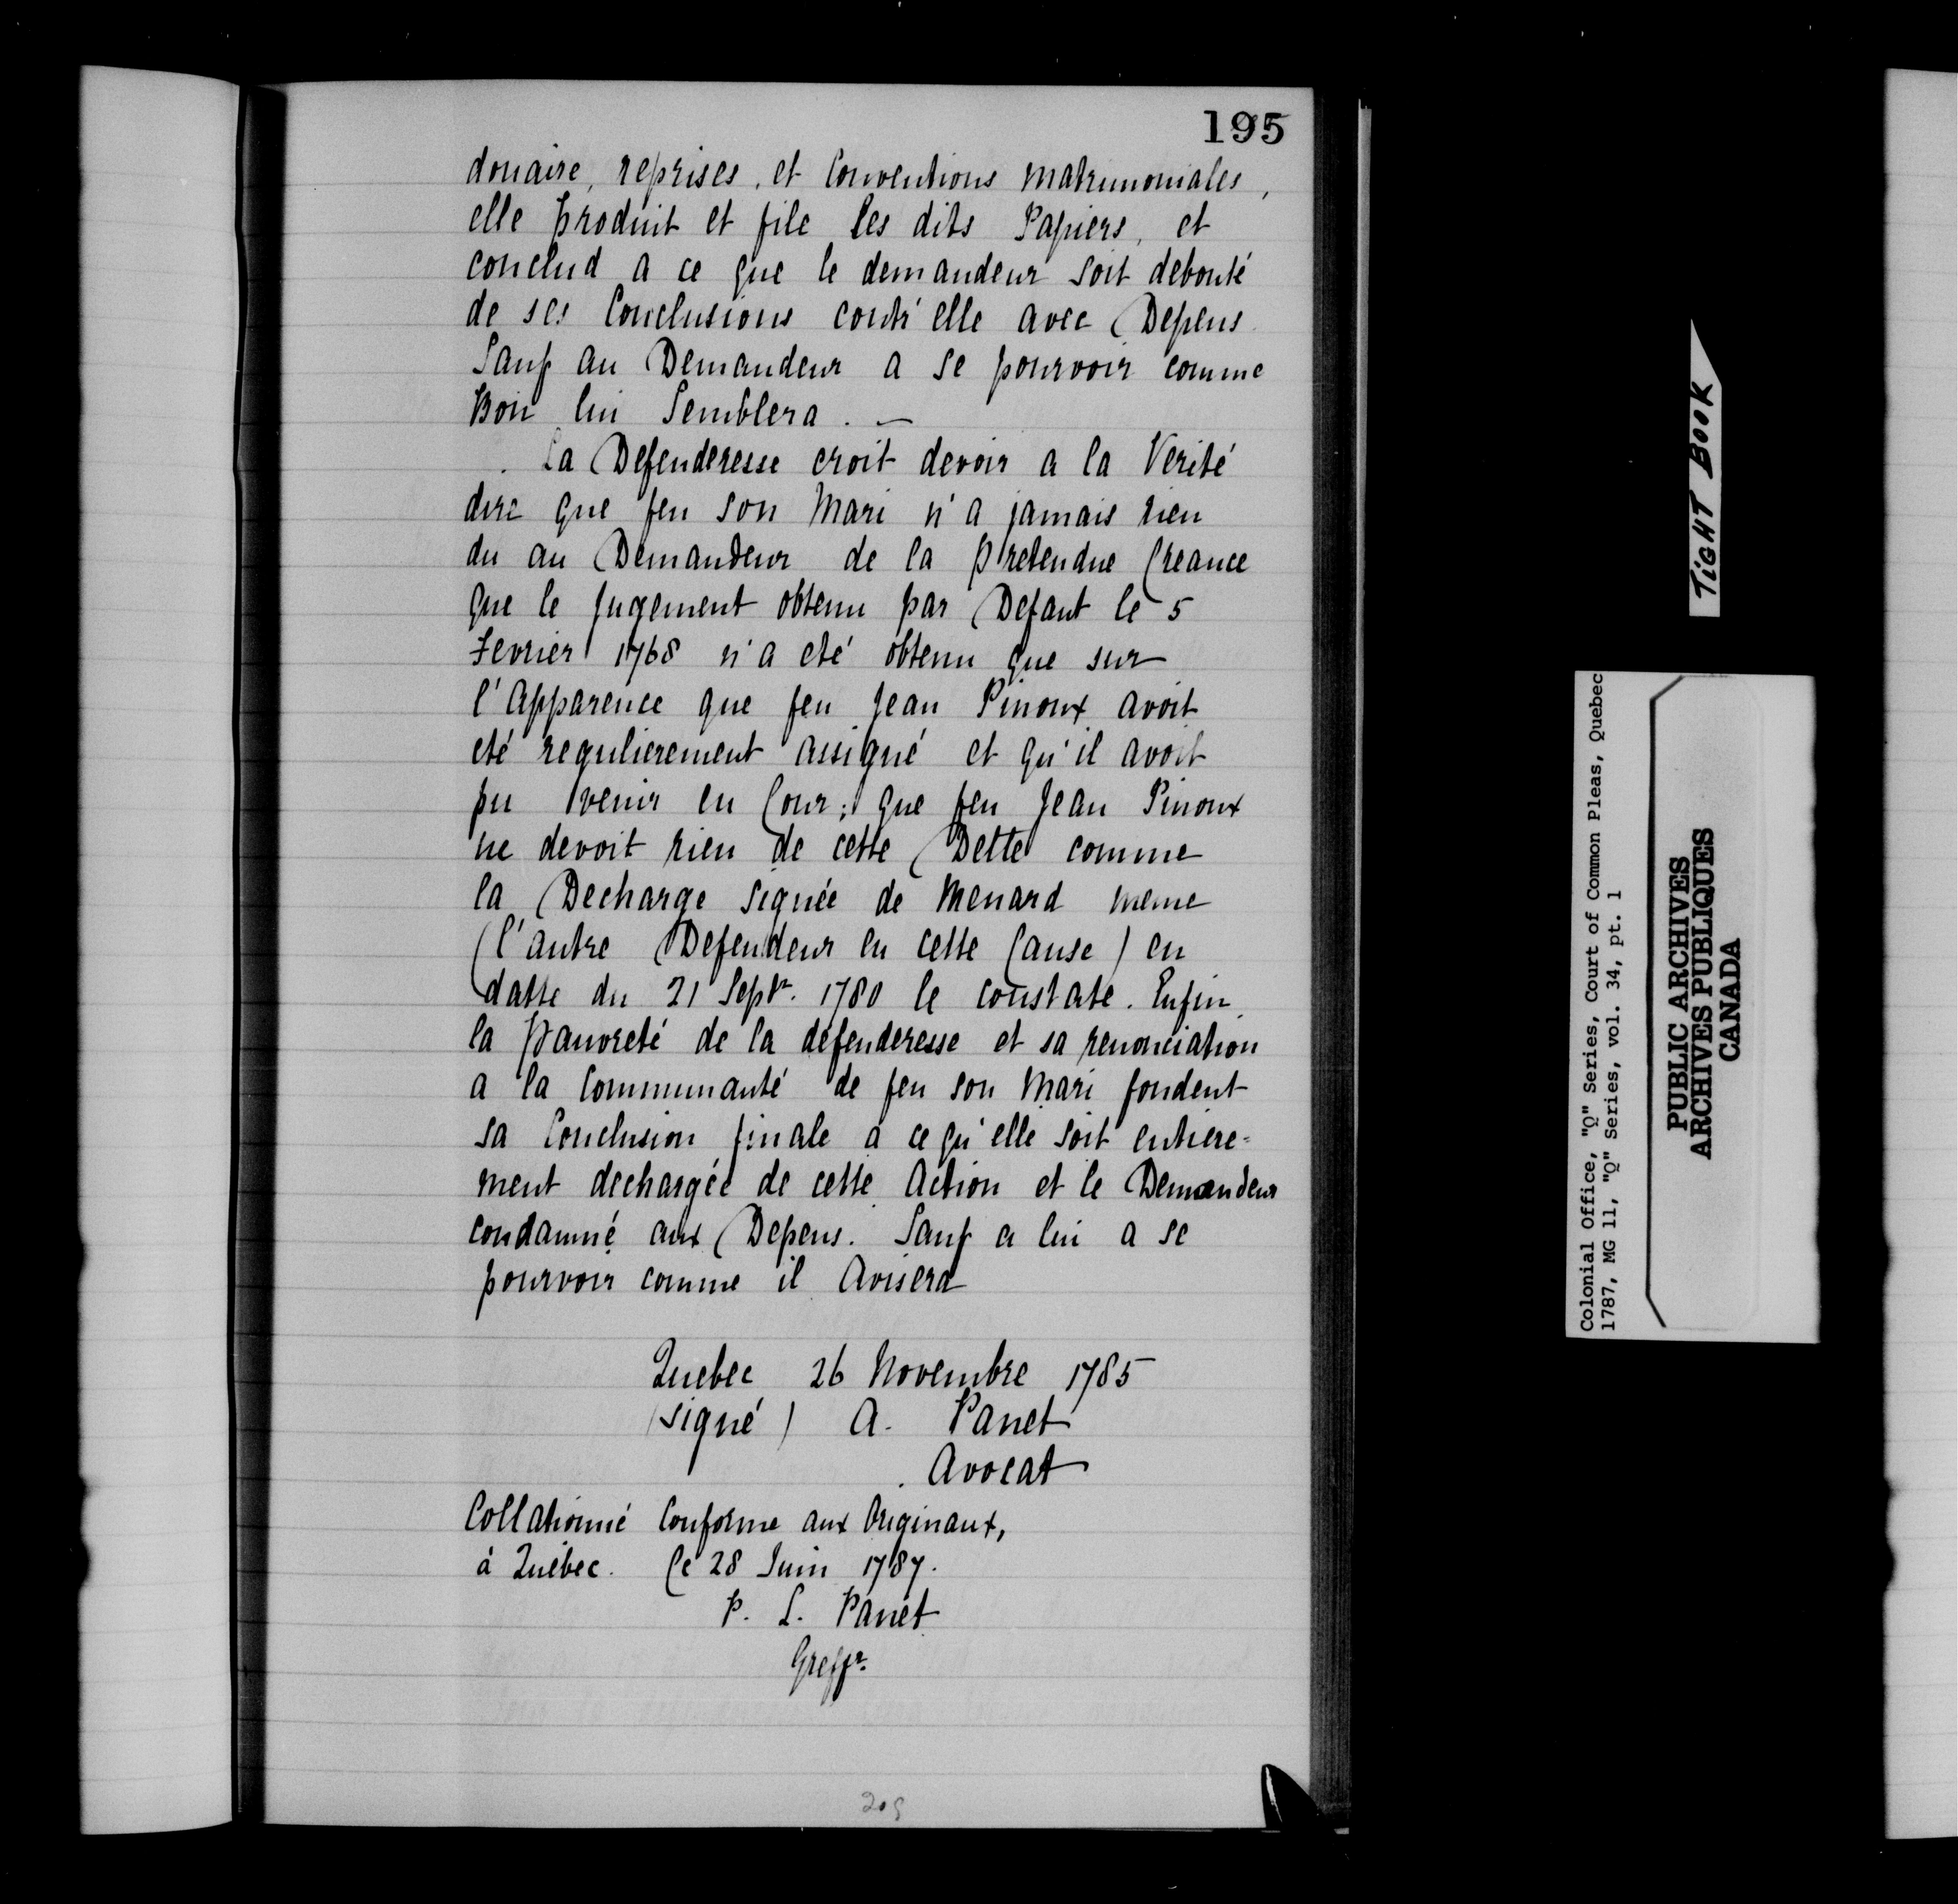 195
douaire, reprises, et Conventions matrimoniales,
elle produit et file les dits Papiers, et
conclud a ce que le demandeur soit debouté
de ses Conclusions contr'elle avec Depens
Sauf au Demandeur a se pourvoir comme
Bon lui Semblera. —
La Defenderesse croit devoir a la Verité
dire que feu son Mari n'a jamais rien
du au Demandeur de la pretendue Creance
que le Jugement obtenu par Defaut le 5
Fevrier 1768 n'a eté obtenu que sur
l'Apparence que feu Jean Pinoux avoit
eté regulierement assigné et qu'il avoit
pu venir en Cour; que feu Jean Pinoux
ne devoit rien de cette Dette comme
la Decharge signée de Menard meme
(l'autre Defendeur en cette Cause) en
datte du 21 Septr. 1780 le constate. Enfin
la Pauvreté de la défenderesse et sa renonciation
a la Communauté de feu son Mari fondent
sa Conclusion finale a ce qu'elle soit entiere-
ment dechargée de cette Action et le Demandeur
condamné aux Depens. Sauf a lui a se
pourvoir comme il Avisera
Quebec 26 Novembre 1785
(signé) A. Panet
Avocat
Collationné Conforme aux Originaux,
à Québec. Ce 28 Juin 1787.
P. L. Panet
Greffr.
205
TIGHT BOOK
Colonial Office, "Q" Series, Court of Common Pleas, Quebec
1787, MG 11, "Q" Series, vol. 34, pt. 1
PUBLIC ARCHIVES
ARCHIVES PUBLIQUES
CANADA